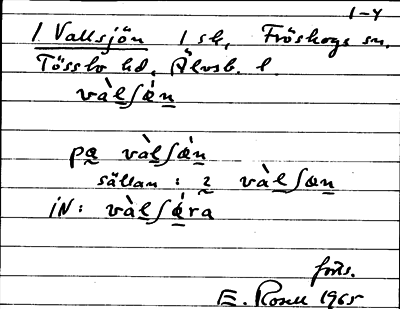 1-4
1 Vallsjön 1 sk, Fröskogs sn.
Tössbo hd, Älvsb. l.
vàlʃǿn
på vàlʃǿn
sällan: 2 vàlʃøn
iN: vàlʃǿra
forts.
E. Rosell 1965